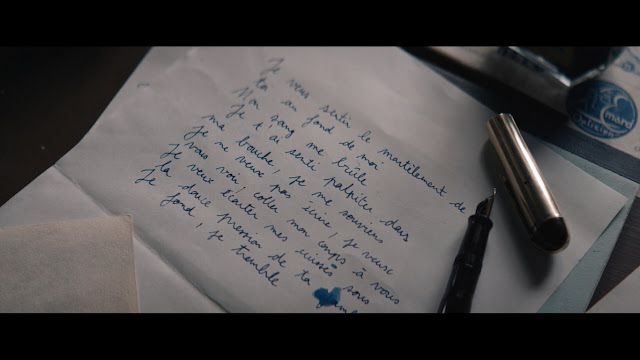 Je veux sentir le martèlement de
toi au fond de moi
Mon sang me brûle
Je t'ai senti palpiter dans
ma bouche, je me souviens
Je ne veux pas écrire, je veux
vous voir, coller mon corps à vous
Je veux écarter mes cuisses sous
la douce pression de ta
Je fond, je tremble